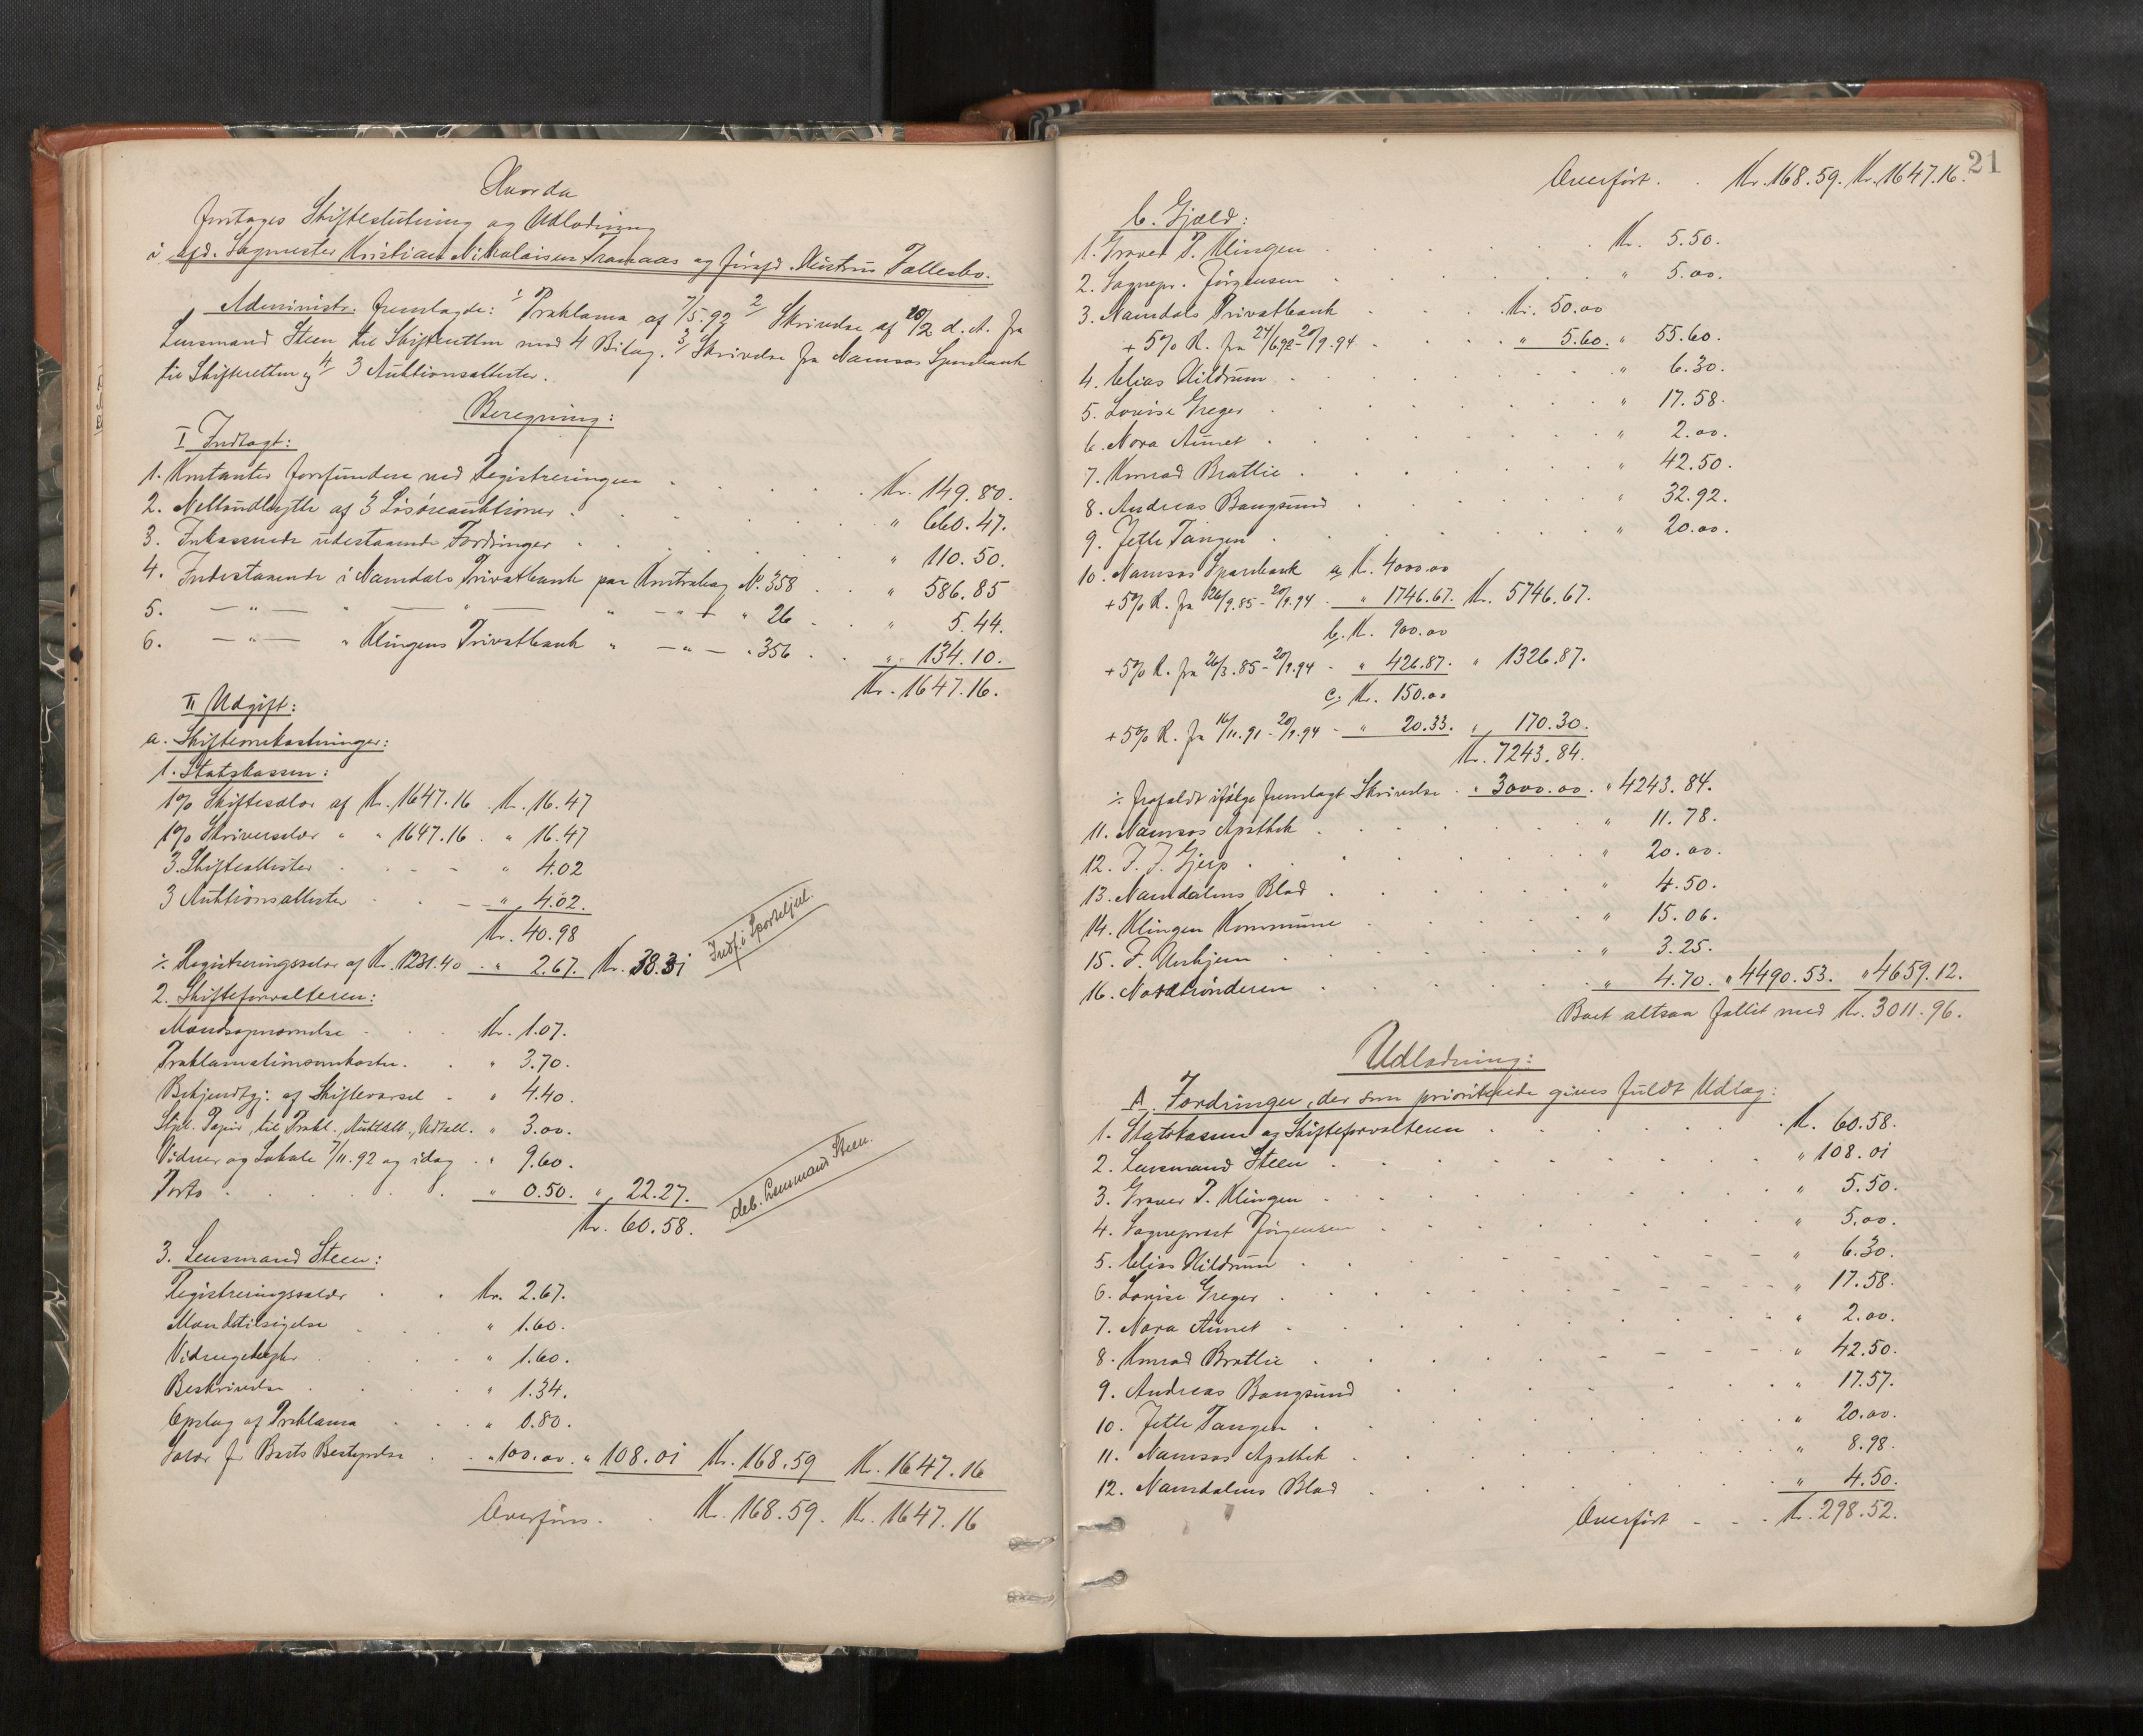 Hvorda
foretoges Skifteslutning og Udlodning
i afd. Sagmester Kristian Nikolaisen Tranaas og førafd. Hustrus Fællesbo.
Administr. fremlagde: 1/ Proklama af 7/5.92 2/ Skrivelse af 20/2 d. A. fra
Lensmand Steen til Skifteretten med 4 Bilag. 3/ Skrivelse fra Namsos Sparebank
til Skifteretten og 4/ 3 Auktionsattester.
Beregning:
I Indtægt:
1. Kontanter forefundne ved Registreringen . . . . Kr. 149.80.
2. Nettoudbytte af 3 Løsøreauktioner . . . . " 660.47.
3. Inkasserede udestaaende Fordringer . . . . " 110.50.
4. Indestaaende i Namdals Privatbank paa Kontrabog No. 358 . . " 586.85
5. — " — " — " — " — " — " 26 . . " 5.44.
6. — " — " Klingens Privatbank " — " — " 356 . . " 134.10.
Kr. 1647.16.
II Udgift:
a. Skifteomkostninger:
1. Statskassen:
1% Skiftesalær af Kr. 1647.16 . Kr. 16.47
1% Skriversalær " " 1647.16 . " 16.47
3 Skifteattester . . - " 4.02
3 Auktionsattester . . - " 4.02.
Kr. 40.98
÷ Registreringssalær af Kr. 1231.40 . " 2.67. Kr. 38.31
Indf. i Sporteljnl.
2. Skifteforvalteren:
Mandsopnævnelse . . . Kr. 1.07.
Proklamationsomkostn. . . " 3.70.
Bekjendtgj: af Skiftevarsel - " 4.40.
Stpl. Papir til Prokl., Auktatt., Udtall. " 3.00.
Vidner og Lokale 7/11.92 og idag . " 9.60.
Porto . . . . . . " 0.50. " 22.27.
Kr. 60.58.
deb. Lensmand Steen.
3. Lensmand Steen:
Registreringssalær . . Kr. 2.67.
Mandstilsigelse . . . " 1.60.
Vidnegebyhr . . . " 1.60.
Beskrivelse . . . " 1.34.
Opslag af Proklama . . " 0.80.
Salær for Boets Bestyrelse . . " 100.00. " 108.01 Kr. 168.59 Kr. 1647.16
Overføres. . Kr. 168.59. Kr. 1647.16
21
Overført. . Kr. 168.59. Kr. 1647.16.
b. Gjæld:
1. Graver P. Klingen . . . . . . Kr. 5.50.
2. Sognepr. Jørgensen . . . . . " 5.00.
3. Namdals Privatbank . . . Kr. 50.00
+ 5% R. fra 24/6.92 - 20/9.94 . . . . " 5.60. " 55.60.
4. Elias Hildrum . . . . . " 6.30.
5. Lovise Greger . . . . . " 17.58.
6. Nora Aunet . . . . . " 2.00.
7. Konrad Brattli . . . . . " 42.50.
8. Andreas Bangsund . . . . . " 32.92.
9. Jette Tangen . . . . . " 20.00.
10. Namsos Sparebank a, Kr. 4000.00
+ 5% R. fra 26/9.85 - 20/9.94 . " 1746.67. Kr. 5746.67.
b, Kr. 900.00
+ 5% R. fra 26/3.85 - 20/9.94 - " 426.87. " 1326.87.
c, Kr. 150.00
+ 5% R. fra 16/11.91 - 20/9.94 - " 20.33. " 170.30.
Kr. 7243.84.
÷ frafaldt ifølge fremlagt Skrivelse . " 3000.00. " 4243.84.
11. Namsos Apothek . . . . . " 11.78.
12. J. J. Gjerp . . . . . " 20.00.
13. Namdalens Blad . . . . . " 4.50.
14. Klingen Kommune . . . . . " 15.06.
15. J. Urhjem . . . . . " 3.25.
16. Nordtrønderen . . . . . " 4.70. " 4490.53. " 4659.12.
Boet altsaa fallit med Kr. 3011.96.
Udlodning:
A. Fordringer, der som prioriterede gives fuldt Udlæg:
1. Statskassen og Skifteforvalteren . . . . . Kr. 60.58.
2. Lensmand Steen . . . . . " 108.01
3. Graver P. Klingen . . . . . " 5.50.
4. Sogneprest Jørgensen . . . . . " 5.00.
5. Elias Hildrum . . . . . " 6.30.
6. Lovise Greger . . . . . " 17.58.
7. Nora Aunet . . . . . " 2.00.
8. Konrad Brattli . . . . . " 42.50.
9. Andreas Bangsund . . . . . " 17.57.
10. Jette Tangen . . . . . " 20.00.
11. Namsos Apothek . . . . . " 8.98.
12. Namdalens Blad . . . . . " 4.50.
Overført - - . Kr. 298.52.